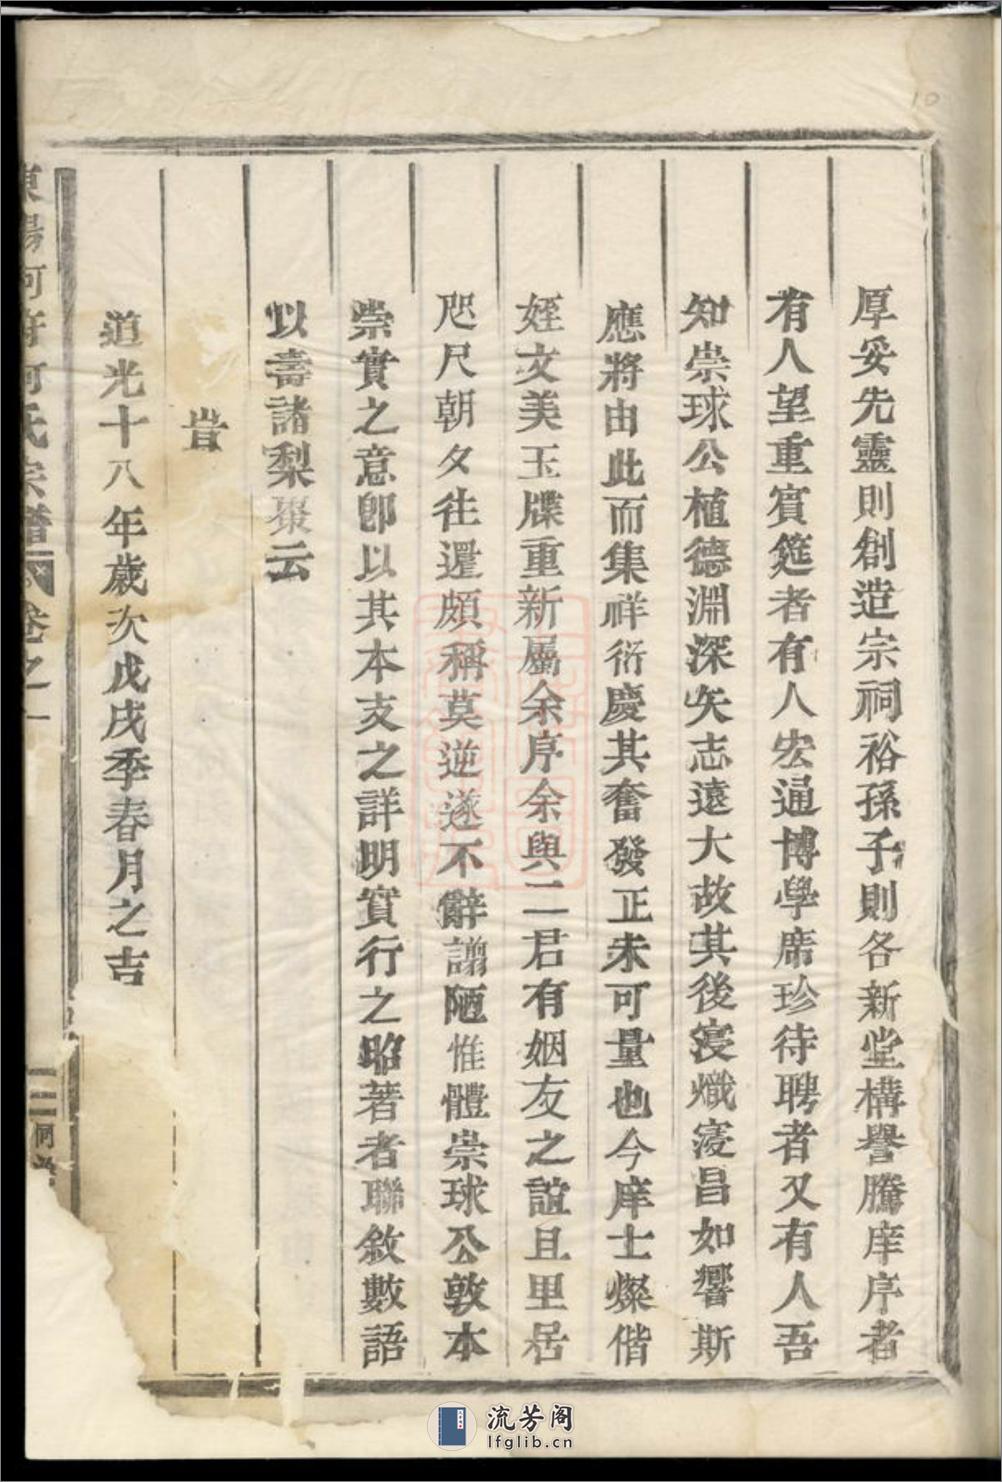 厚妥先靈則創造宗祠裕孫子則各新堂構譽騰庠序者
有人望重賓筵者有人宏通博學席珍待聘者又有人吾
知崇球公植德淵深矢志遠大故其後寖熾寖昌如響斯
應將由此而集祥衍慶其奮發正未可量也今庠士燦偕
姪文美玉牒重新屬余序余與二君有姻友之誼且里居
咫尺朝夕往還頗稱莫逆遂不辭譾陋惟體崇球公敦本
崇實之意卽以其本支之詳明實行之昭著者聯敘數語
以壽諸梨棗云
旹
道光十八年歲次戊戌季春月之吉
東陽河府何氏宗譜 卷之一
三
10
流芳阁
lfglib.cn